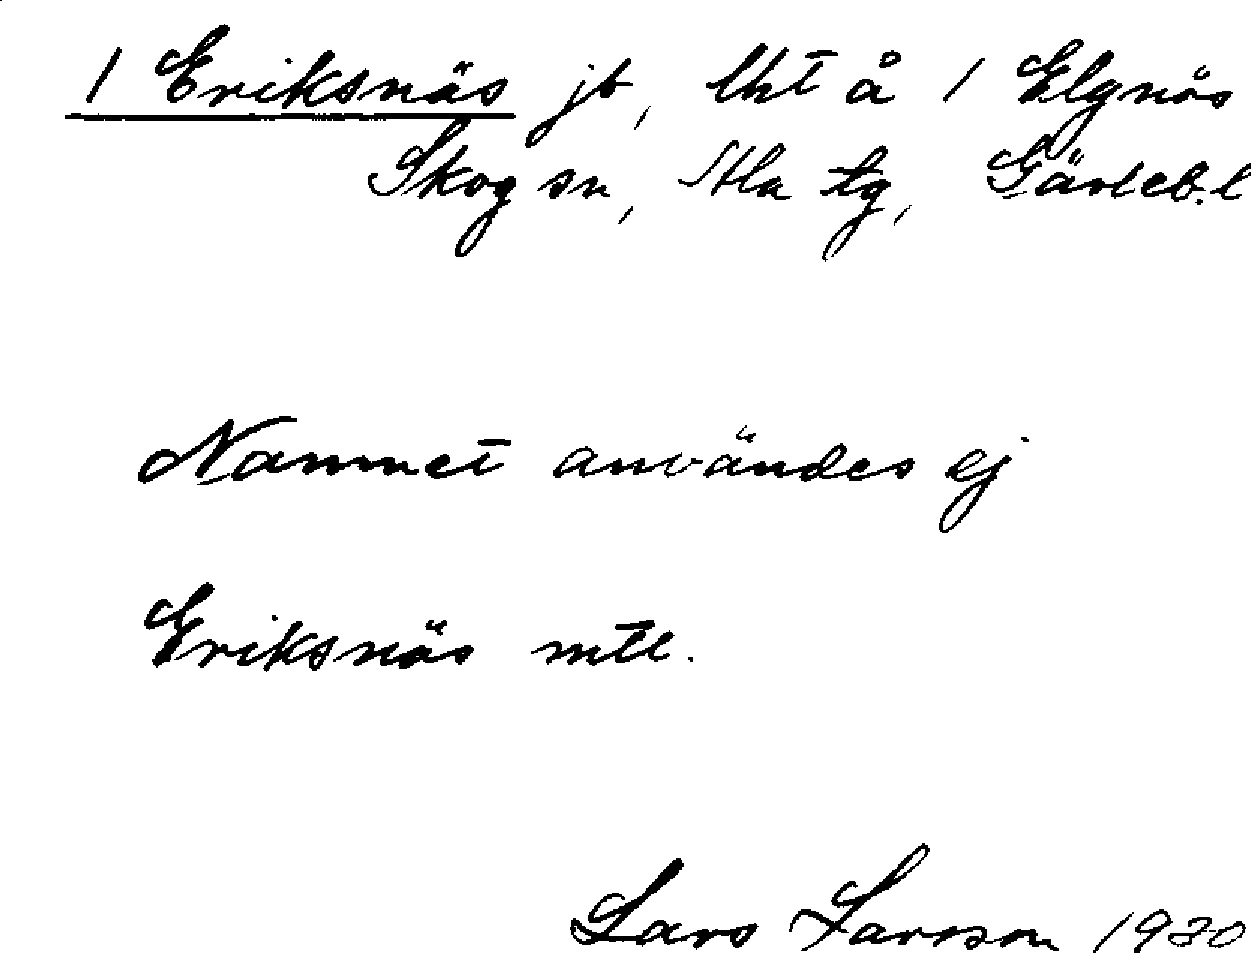 1 Eriksnäs jb, lht å 1 Elgnäs
Skog sn, Ala tg, Gävleb.l
Namnet användes ej
Eriksnäs mtl.
Lars Larsson 1930